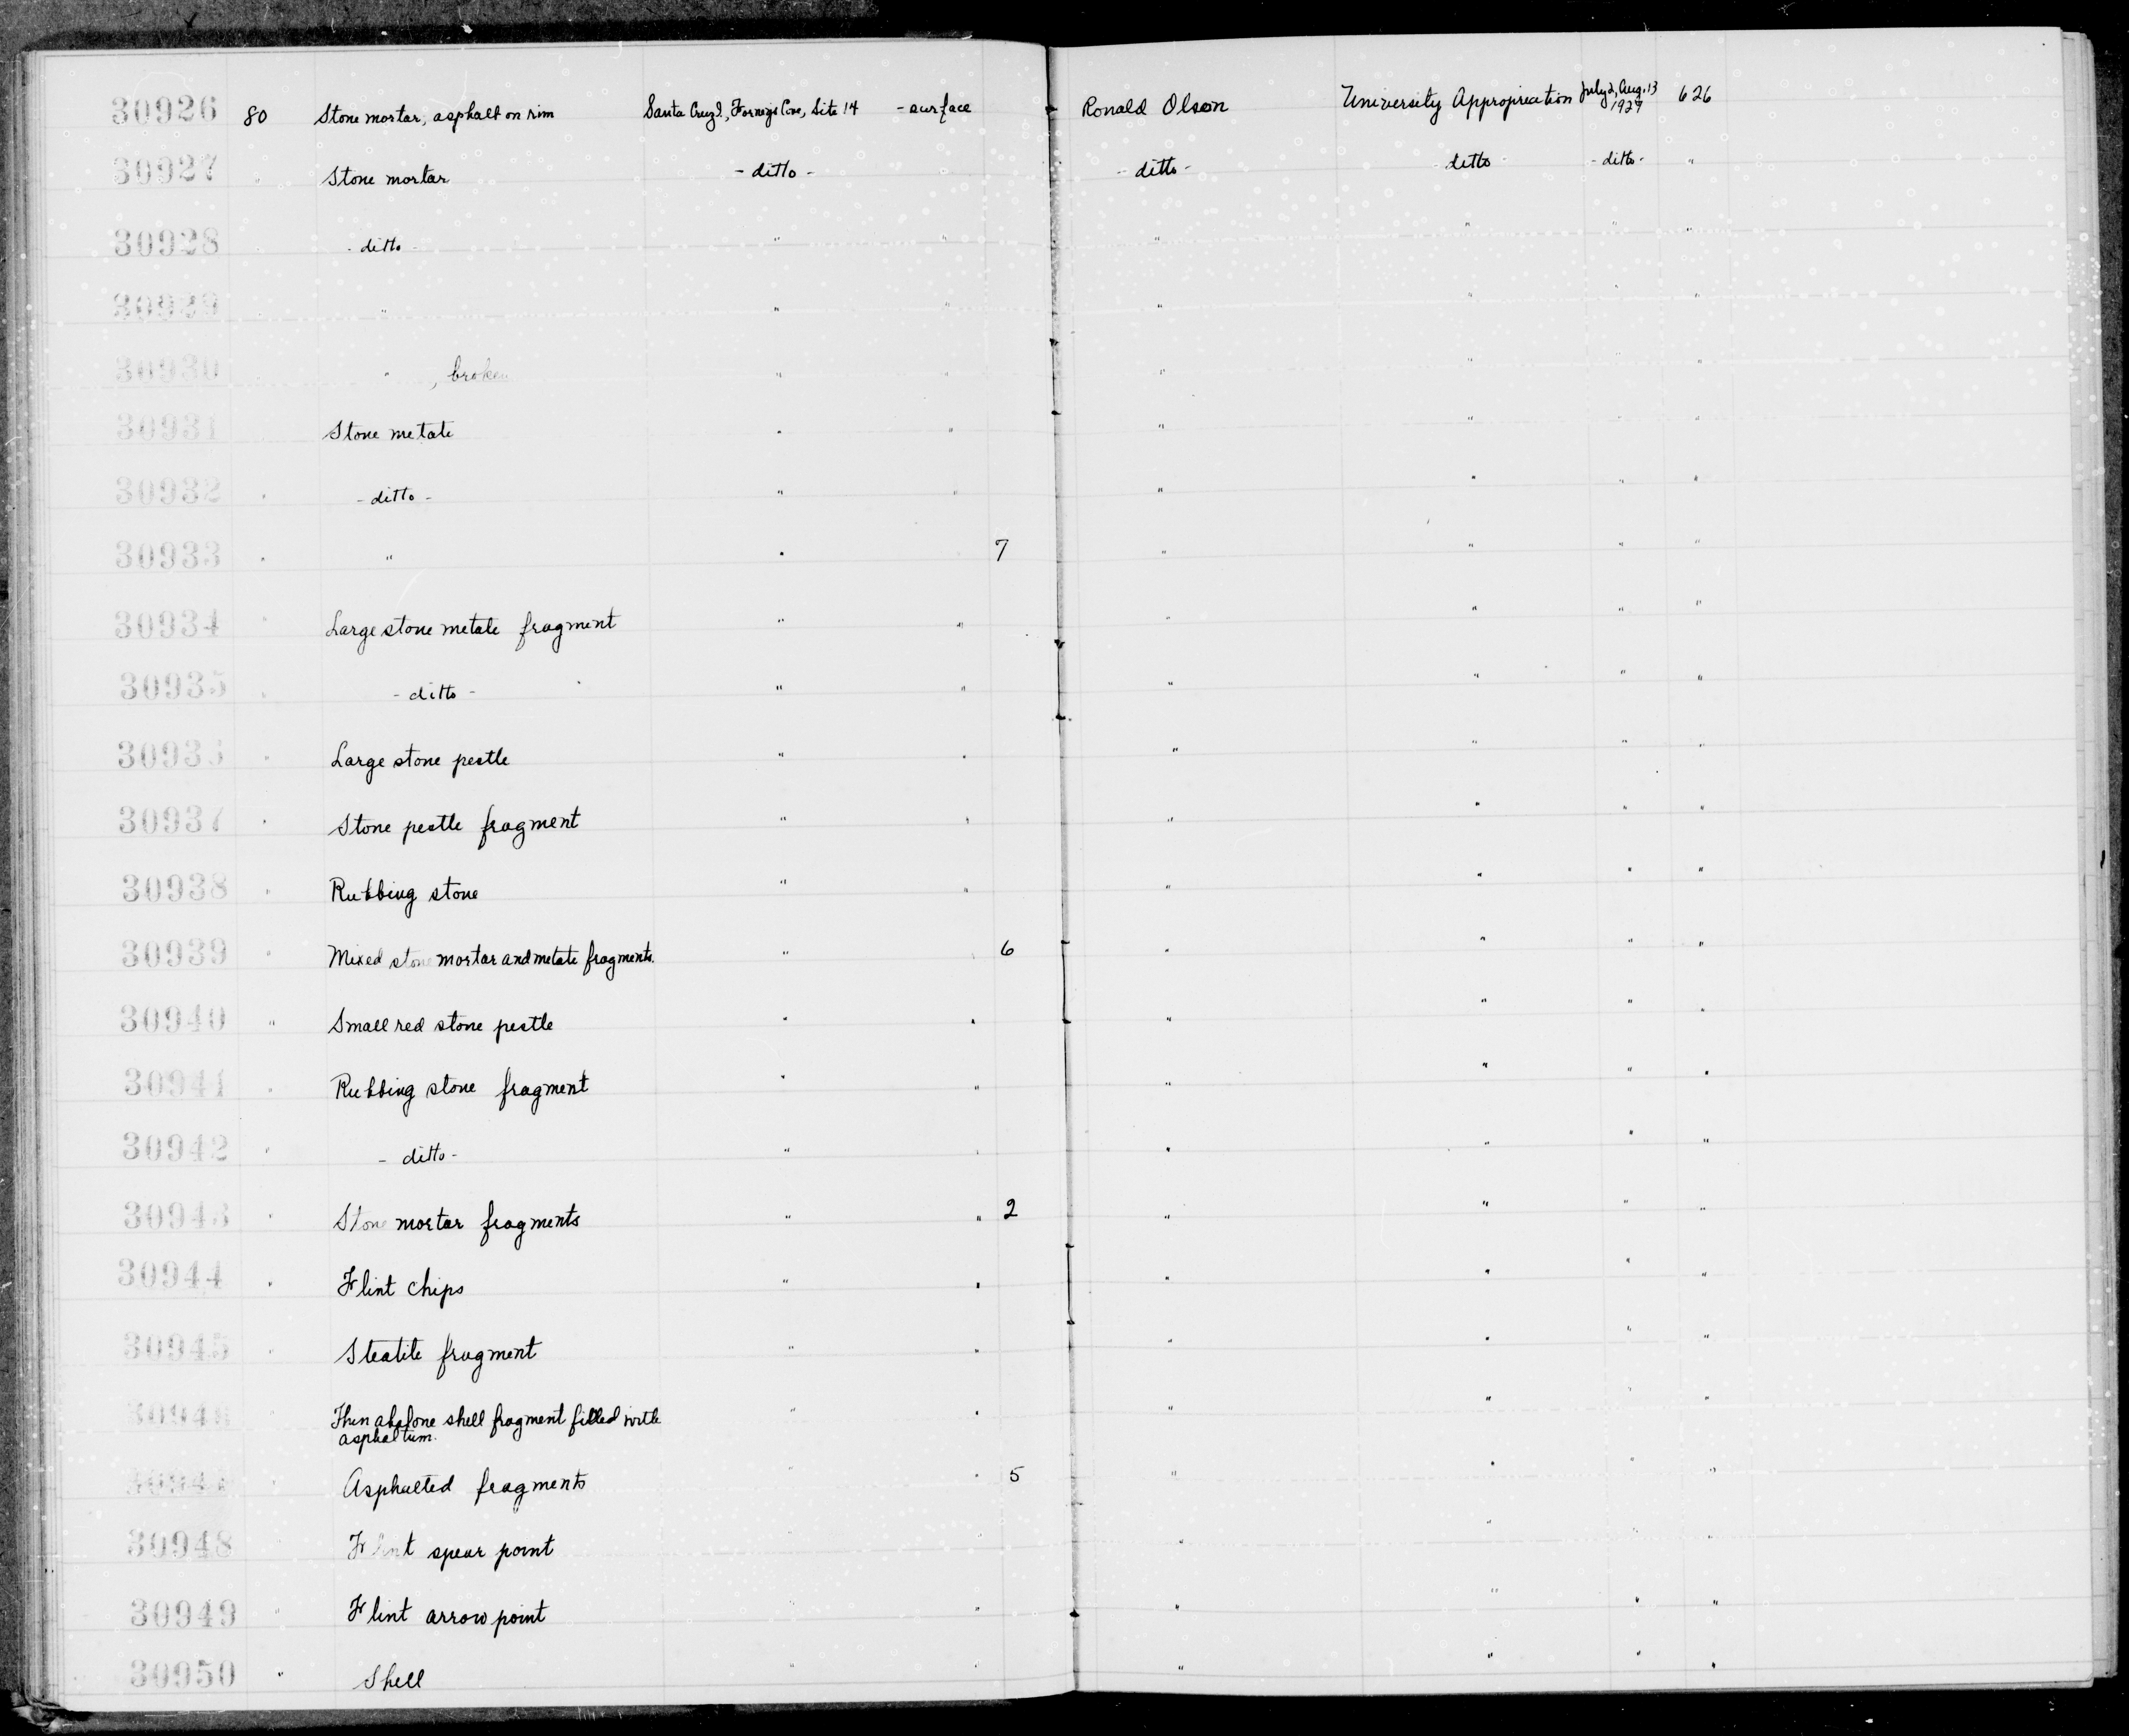 30926 80 Stone mortar, asphalt on rim Santa Cruz I., Forneys Cove, Site 14 - surface Ronald Olson University Appropriation July 2, Aug. 13 1927 626
30927 " Stone mortar - ditto - " - ditto - - ditto - - ditto - "
30928 " - ditto - " " " " " "
30929 " " " " " " " "
30930 " " , broken " " " " " "
30931 Stone metate " " " " " "
30932 " - ditto - " " " " " "
30933 " " " " 7 " " " "
30934 " Large stone metate fragment " " " " " "
30935 " - ditto - " " " " " "
30936 " Large stone pestle " " " " " "
30937 " Stone pestle fragment " " " " " "
30938 " Rubbing stone " " " " " "
30939 " Mixed stone mortar and metate fragments. " " 6 " " " "
30940 " Small red stone pestle " " " " " "
30941 " Rubbing stone fragment " " " " " "
30942 " - ditto - " " " " " "
30943 " Stone mortar fragments " " 2 " " " "
30944 " Flint chips " " " " " "
30945 " Steatite fragment " " " " " "
30946 " Thin abalone shell fragment filled with " " " " " "
asphaltum.
30947 " Asphalted fragments " " 5 " " " "
30948 " Flint spear point " " " " " "
30949 " Flint arrow point " " " " " "
30950 " Shell " " " " " "